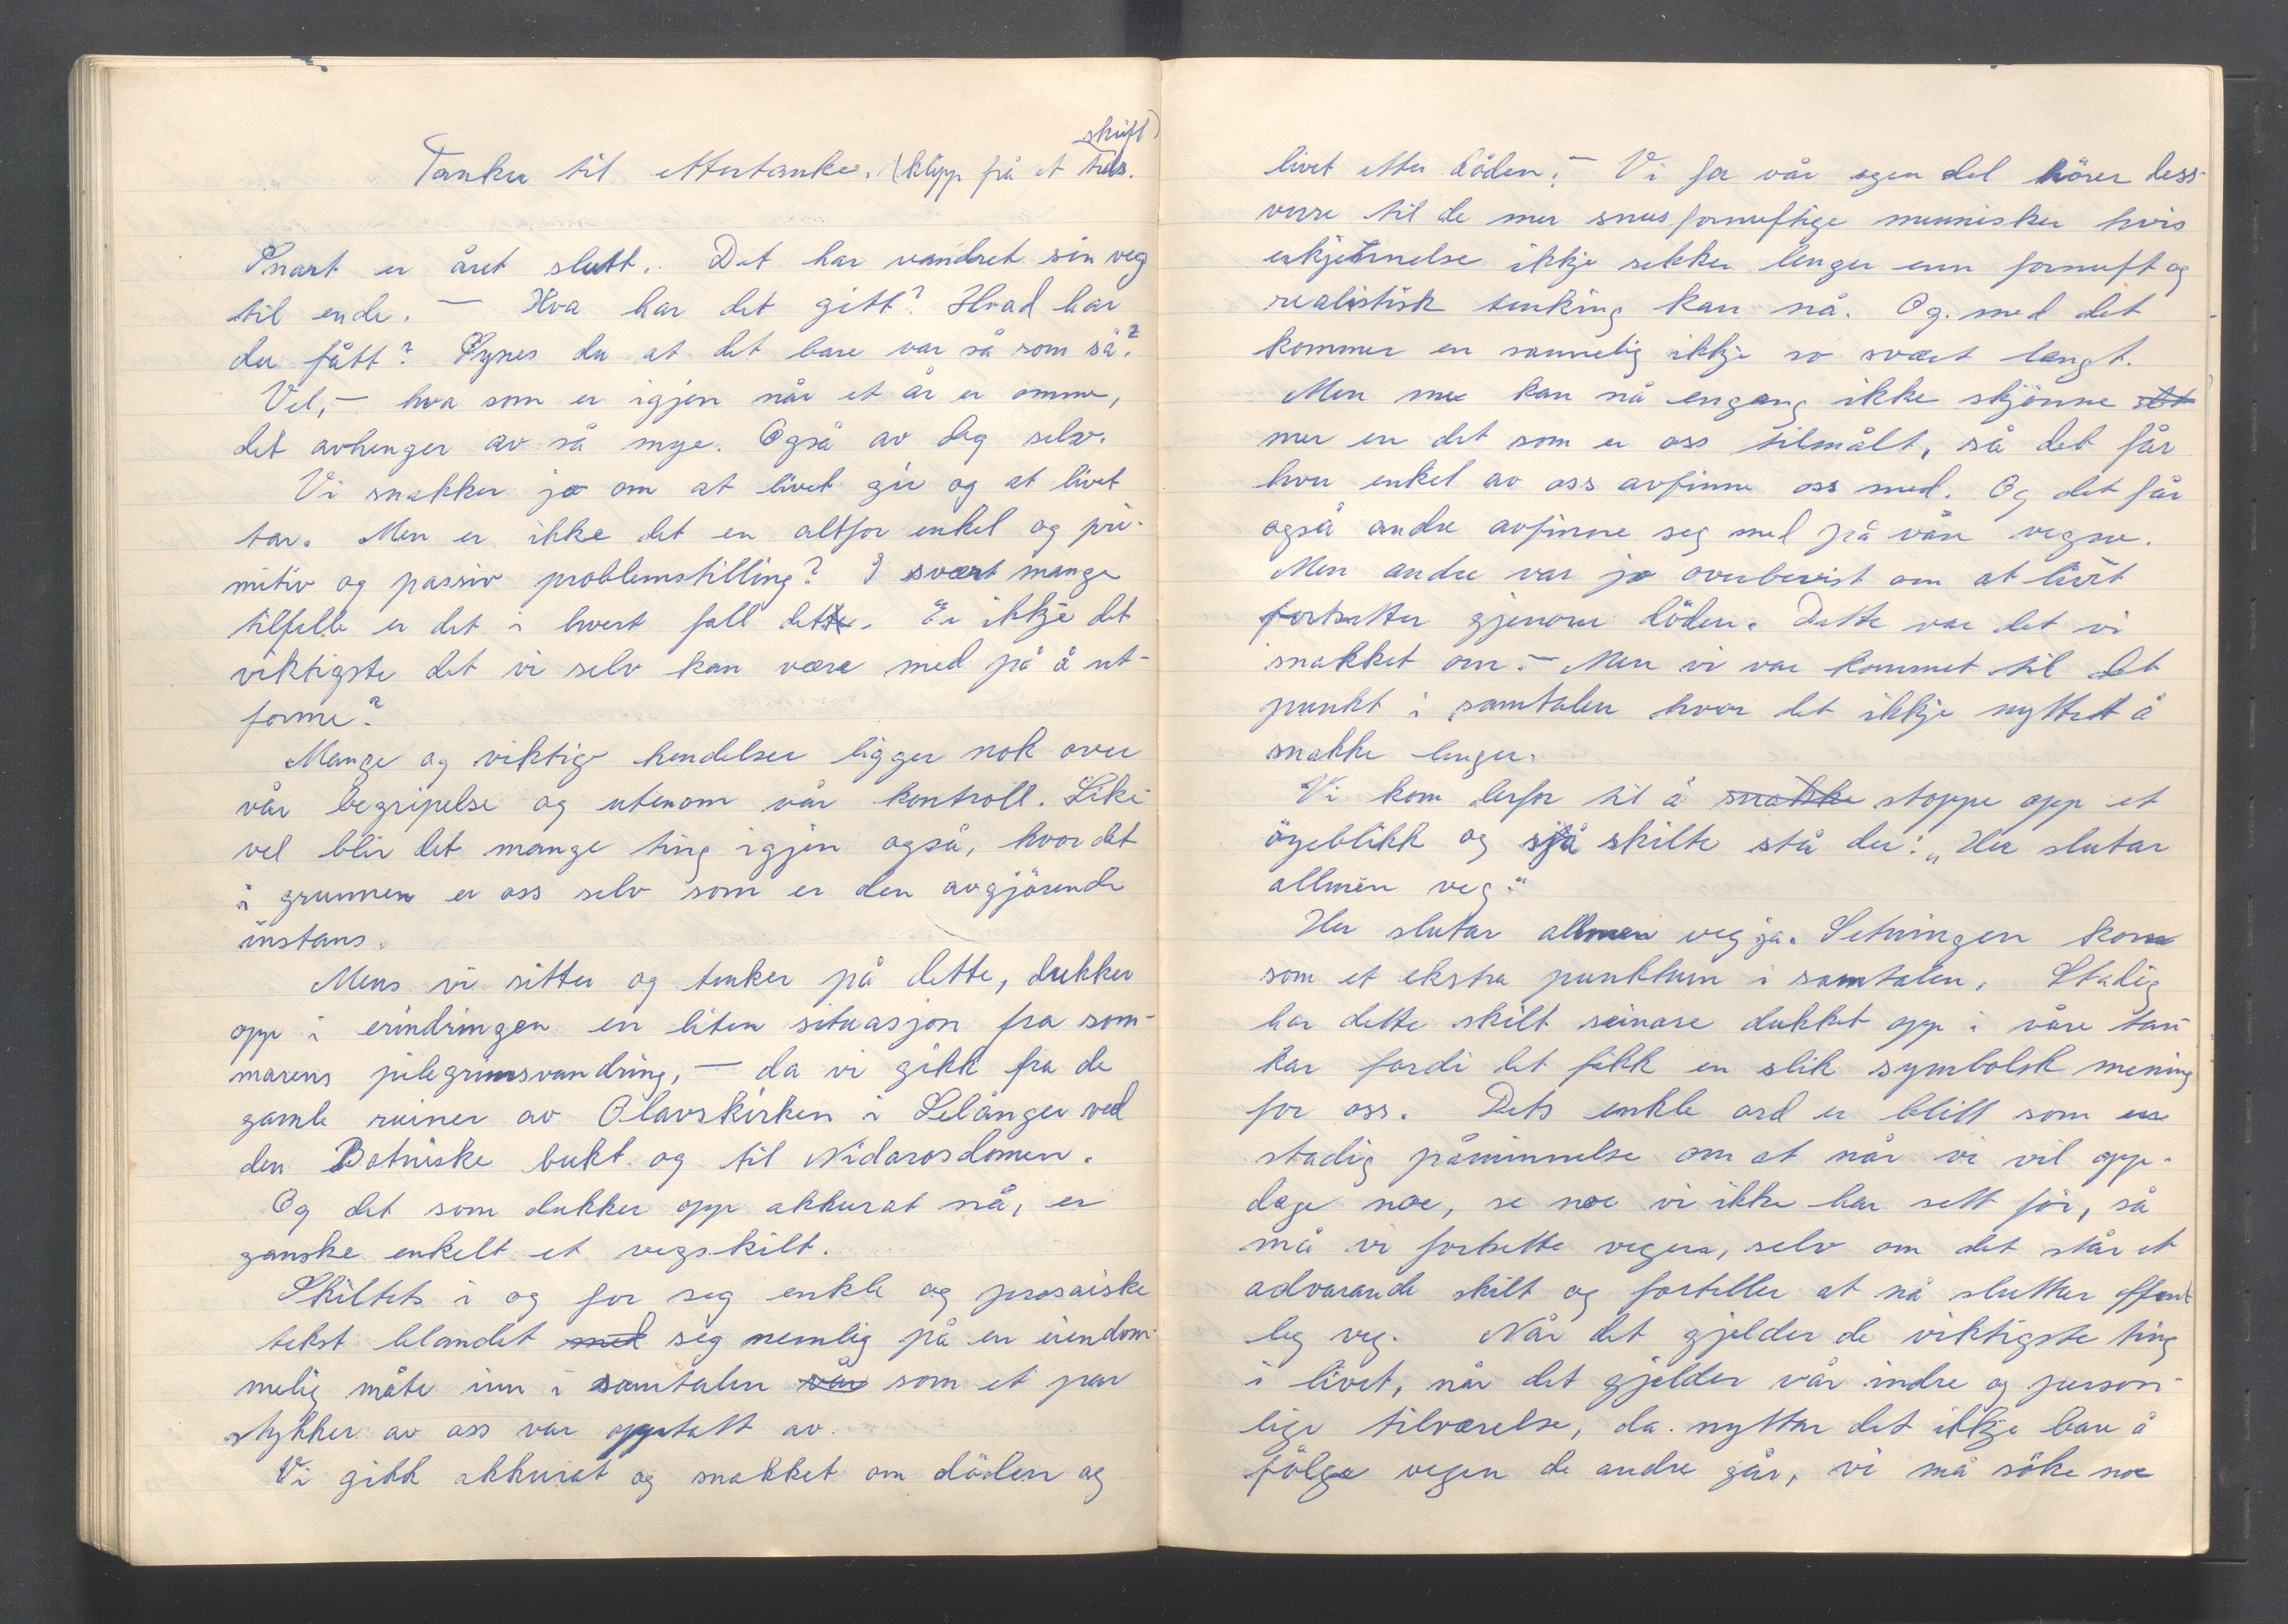 Tanker til ettertanke. (klipp frå et tids.
skrift)
Snart er året slutt. Det har vandret sin veg
til ende. — Hva har det gitt? Hvad har
du fått? Synes du at det bare var så som så?
Vel, — hva som er igjen når et år er omme,
det avhenger av så mye. Også av deg selv.
Vi snakker jo om at livet gir og at livet
tar. Men er ikke det en altfor enkel og pri-
mitiv og passiv problemstilling? I svært mange
tilfelle er det i hvert fall dette. Er ikkje det
viktigste det vi selv kan være med på å ut-
forme?
Mange og viktige hendelser ligger nok over
vår begripelse og utenom vår kontroll. Like-
vel blir det mange ting igjen også, hvor det
i grunnen er oss selv som er den avgjörende
instans.
Mens vi sitter og tenker på dette, dukker
opp i erindringen en liten situasjon fra som-
marens pilegrimsvandring, — da vi gikk fra de
gamle ruiner av Olavskirken i Selånger ved
den Botniske bukt og til Nidarosdomen.
Og det som dukker opp akkurat nå, er
ganske enkelt et vegskilt.
Skiltets i og for seg enkle og prosaiske
tekst blandet med seg nemlig på en eiendom-
melig måte inn i samtalen vår som et par
stykker av oss var opptatt av.
Vi gikk akkurat og snakket om döden og
livet etter döden. — Vi for vår egen del hörer dess-
verre til de mer snusfornuftige mennisker hvis
erkjennelse ikkje rekker lenger enn fornuft og
realistisk tenking kan nå. Og med det
kommer en sannelig ikkje so svært langt.
Men me kan nå engang ikke skjönne
mer en det som er oss tilmålt, så det får
hver enkel av oss avfinne oss med. Og det får
også andre avfinne seg med på våre vegne.
Men andre var jo overbevist om at livet
fortsetter gjenom döden. Dette var det vi
snakket om. — Men vi var kommet til det
punkt i samtalen hvor det ikkje nyttet å
snakke lenger.
Vi kom derfor til å snakke stoppe opp et
öyeblikk og sjå skilte stå der: „Her slutar
allmän veg."
Her slutar allmen veg ja. Setningen kom
som et ekstra punktum i samtalen. Stadig
har dette skilt seinare dukket opp i våre tan-
kar fordi det fikk en slik symbolsk mening
for oss. Dets enkle ord er blitt som en
stadig påminnelse om at når vi vil opp-
dage noe, se noe vi ikke har sett för, så
må vi fortsette vegen, selv om det står et
advarande skilt og forteller at nå slutter offent
leg veg. Når det gjelder de viktigste ting
i livet, når det gjelder vår indre og person-
lige tilværelse, da nyttar det ikkje bare å
fölge vegen de andre går, vi må söke noe